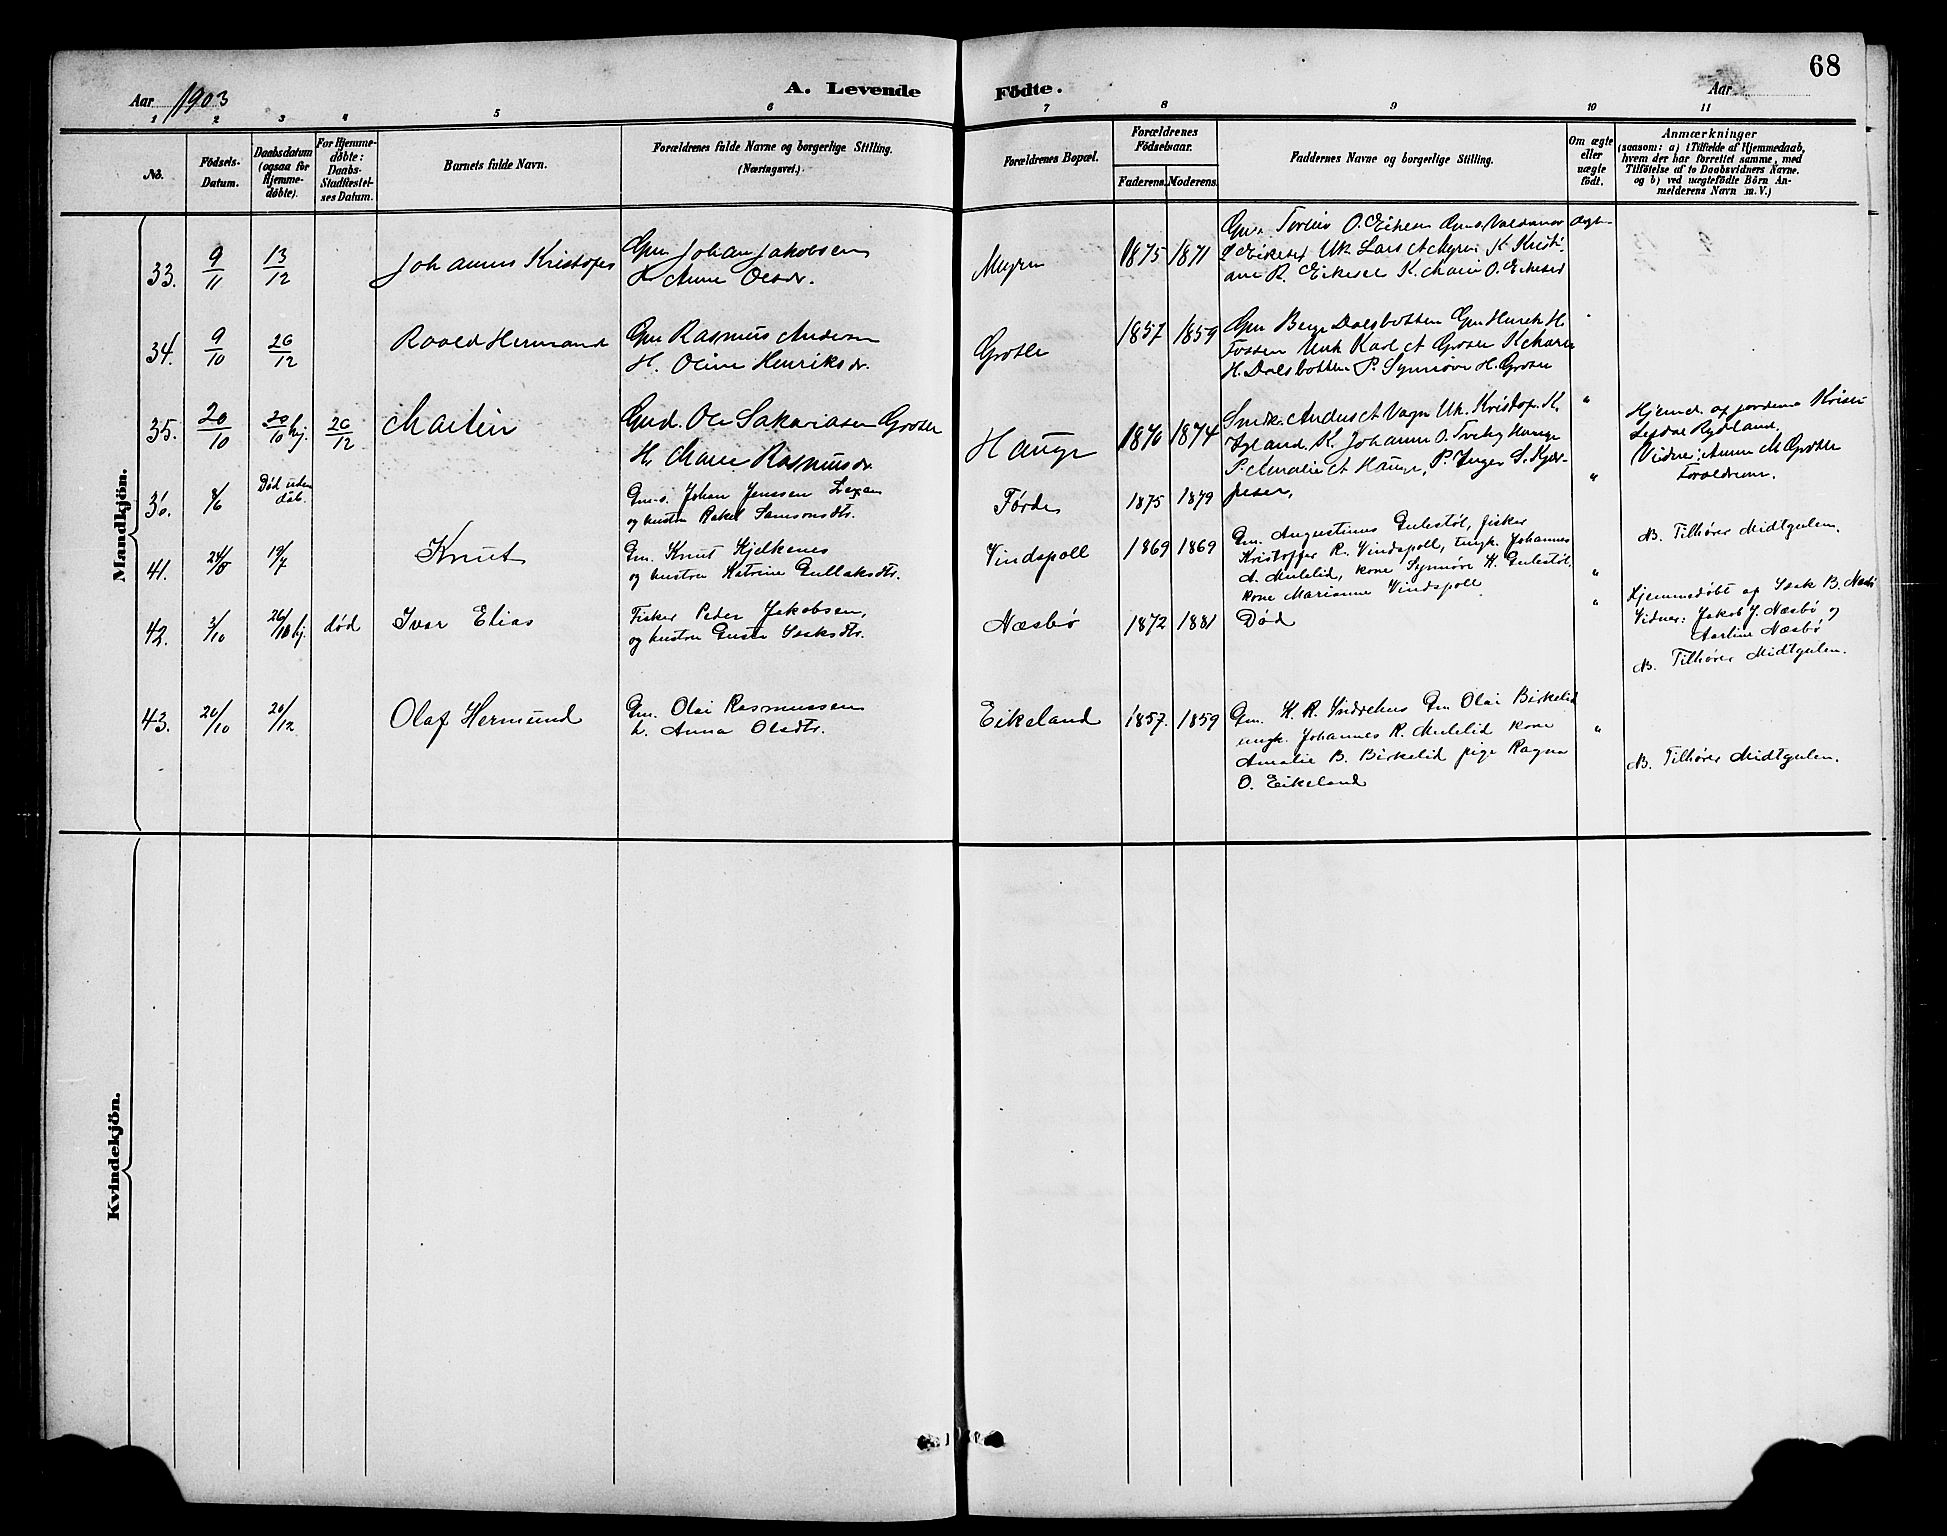 68
Aar 1903
A. Levende Fødte.
Aar
1 2 3 4 5 6 7 8 9 10 11
No.
Fødsels-
Datum.
Daabsdatum
(ogsaa for
Hjemme-
døbte).
For Hjemme-
døbte:
Daabs-
Stadfæstel-
ses Datum.
Barnets fulde Navn.
Forældrenes fulde Navne og borgerlige Stilling.
(Næringsvei.)
Forældrenes Bopæl.
Forældrenes
Fødselsaar.
Faderens. Moderens.
Faddernes Navne og borgerlige Stilling.
Om ægte
eller
uægte
født.
Anmærkninger
(saasom: a) i Tilfælde af Hjemmedaab,
hvem der har forrettet samme, med
Tilføielse af to Daabsvidners Navne.
og b) ved uægtefødte Børn An-
melderens Navn m. V.)
Mandkjön.
33. 9/11 13/12 Johannes Kristofer
Gm Johan Jakobsen
H. Anne Olsdr.
Myren 1875 1871
O. Eikeset
Eikeset Uk. Lars A Myren K. Kristi-
ane R. Eikeset K. Marie O. Eikeset
Ægte
34. 9/10 26/12 Roald Hermand
Gm Rasmus Andersen
H. Oline Henriksdr.
Grotle 1857 1859
Gm Berge Dalsbotten Gm Henrik H.
Fossen Unk Karl A Grotle K Marie
H. Dalsbotten P. Synnøve H. Grotle
"
35. 20/10 20/10 hj. 26/12 Martin
Gmd. Ole Sakariasen Grotle
H. Marie Rasmusdr.
Hauge 1870 1874
Anders A Vagn Uk. Kristof. K.
K. Johanne O. Hauge
P. Amalie A Hauge, P. Inger S.
"
Hjemd. af jordemo
Rydland,
Vidne: Anne M Grotle
Forældrene.
36. 8/6 Død uden
dåb.
Gm.s. Johan Jenssen
og hustru Rakel Samsonsdtr.
Førde 1875 1879
"
N. Tilhører Midtgulen.
41. 24/5 19/7 Knut
Gm. Knut Hjelkenes
og hustru Katrine Gullaksdtr.
Vindspoll 1869 1869
Gm. Augustinus Gulestøl, fisker
Kristoffer R. Vindspoll, ungk. Johannes
A. Mulelid, kone Synnøve H. Gulestøl,
kone Marianne Vindspoll
"
42. 3/10 26/10 hj. død Ivar Elias
Fisker Peder Jakobsen,
og hustru Gusta Isaksdtr.
Næsbø 1872 1881 Død
"
Hjemmedøbt af Isak B. Næsbø
Vidner: Jakob J. Næsbø, og
Karline Næsbø
N. Tilhører Midtgulen.
43. 20/10 20/12 Olaf Hermund
Gm. Olai Rasmussen
h. Anna Olsdtr.
Eikeland 1857. 1859
Gm. K. R. Indrehus Gm. Olai Birkelid
ungk. Johannes R. Mulelid kone
Amalie B. Birkelid pige Ragna
O. Eikeland
"
N. Tilhører Midtgulen.
Kvindekjön.